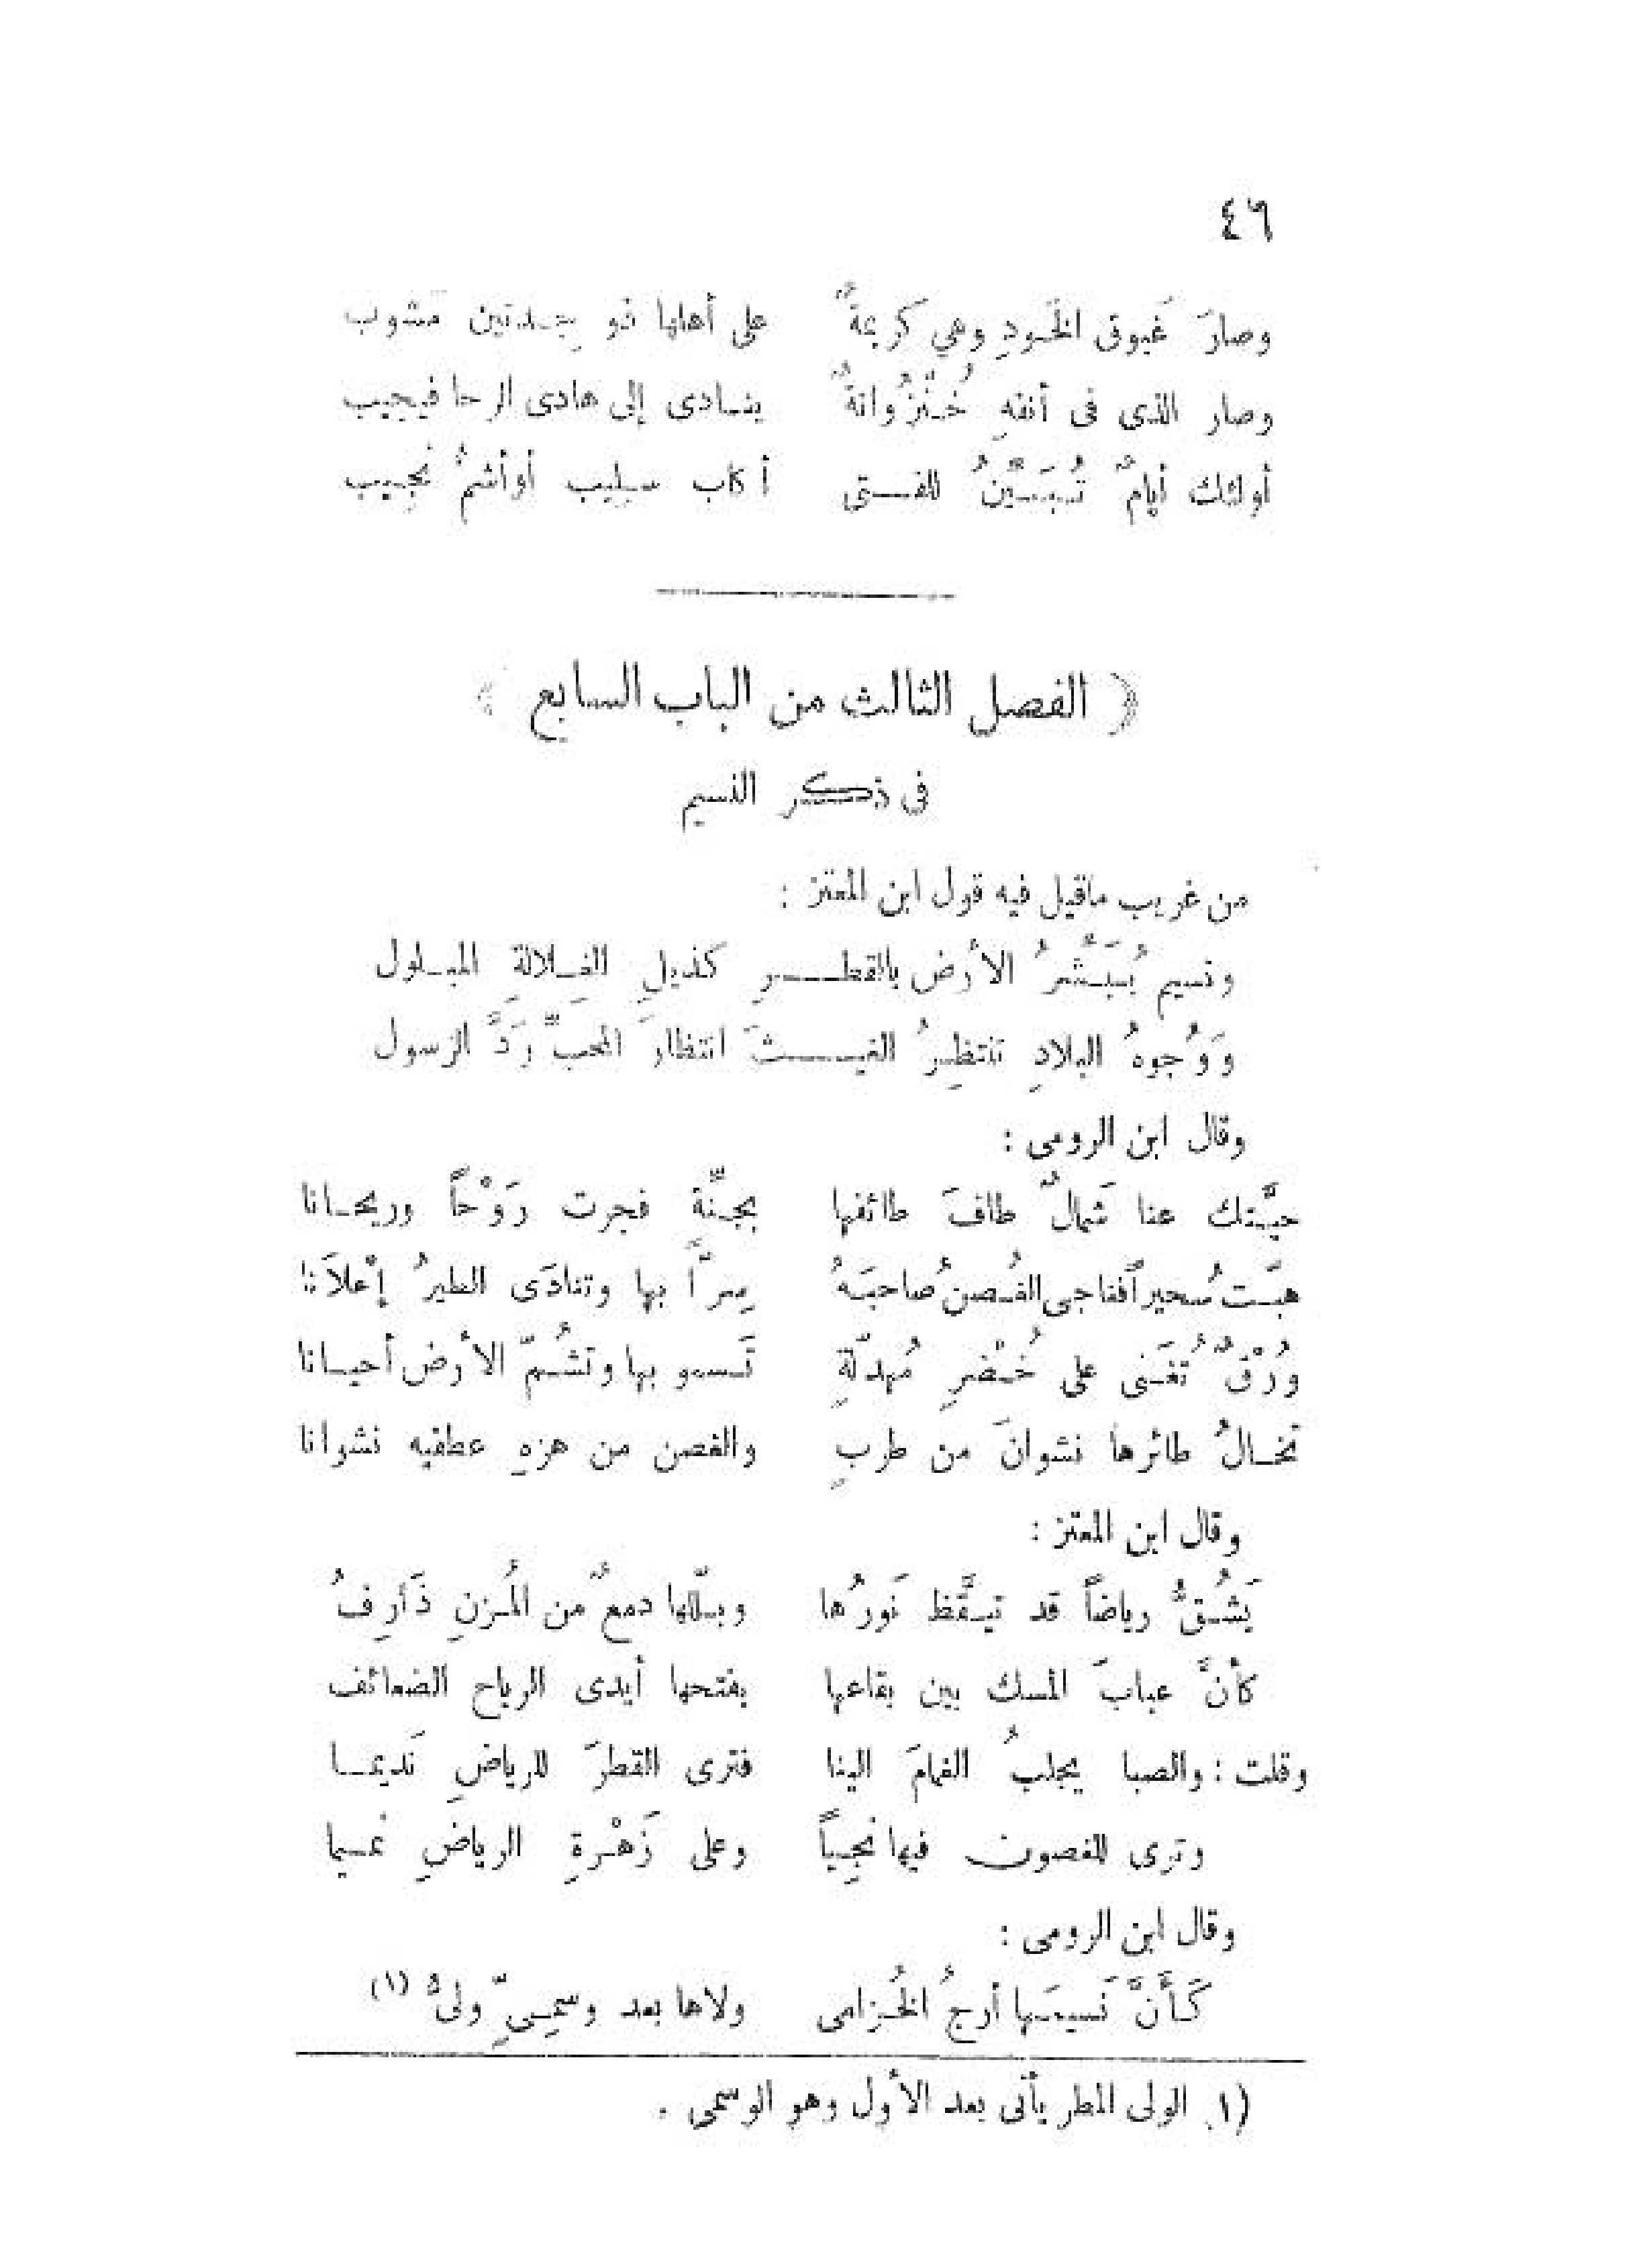 ٤٦
وصارَ غبوق الخَودِ وهي كريمةٌ على أهلها ذو جدتين مشوب
وصار الذى فى أنفهِ خُنْزُوانةٌ ينادى إلى هادى الرحا فيجيب
أولئك أيامٌ تُبَيِّنُ للفتى أكاب سليب أو أشمُّ نجيب
﴿ الفصل الثالث من الباب السابع ﴾
فى ذكر النسيم
من غريب ماقيل فيه قول ابن المعتز :
ونسيم يُبَشِّرُ الأرض بالقطرِ كذيلِ الغِلالة المبلول
وَوُجوهُ البلادِ تنتظِرُ الغيثَ انتظارَ المحبِّ رَدَّ الرسول
وقال ابن الرومى :
حيَّتك عنا شَمالٌ طافَ طائفها بجنَّة فجرت رَوْحاً وريحانا
هبَّت سُحيراً فناجى الغُصنُ صاحبَهُ سِرّاً بها وتنادَى الطيرُ إعْلاَنا
وُرْقٌ تُغَنى على خُضْرٍ مُهدلّةٍ تَسمو بها وتشُمّ الأرض أحيانا
تخالُ طائرها نشوانَ من طربٍ والغصن من هزهِ عطفيه نشوانا
وقال ابن المعتز :
يَشُقُّ رياضاً قد تيقَّظ نَورُها وبلّلها دمعٌ من المُزنِ ذَارِفُ
كأنَّ عبابَ المسك بين بقاعها يفتحها أيدى الرياح الضعائف
وقلت : والصبا يجلبُ الغمامَ الينا فترى القطرَ للرياضِ نَديما
وترى للغصون فيها نجِيّاً وعلى زَهْرةِ الرياضِ نميما
وقال ابن الرومى :
كَأَنَّ نَسيمَها أرجُ الخُزامى ولاها بعد وسمِىّ ولىُّ (١)
(١) الولى المطر يأتى بعد الأول وهو الوسمى .